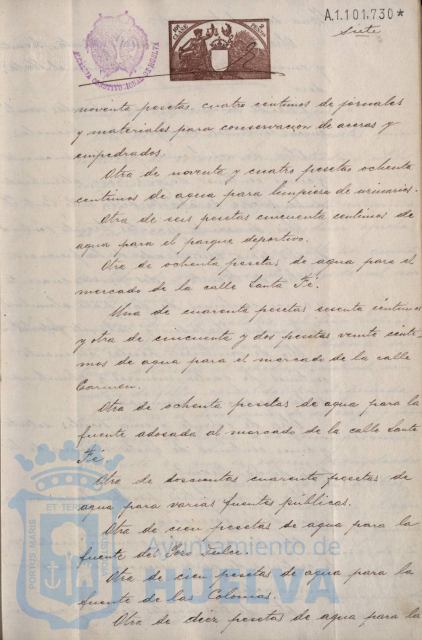 A.1.101.730*
siete
ALCALDIA CONSTITUCIONAL DE HUELVA
noventa pesetas, cuatro centimos de jornales
y materiales para conservacion de aceras y
empedrados.
Otra de noventa y cuatro pesetas ochenta
centimos de agua para limpieza de urinarios.
Otra de seis pesetas cincuenta centimos de
agua para el parque deportivo.
Otra de ochenta pesetas de agua para el
mercado de la calle Santa Fé.
Una de cuarenta pesetas sesenta centimos
y otra de cincuenta y dos pesetas veinte centi-
mos de agua para el mercado de la calle
Carmen.
Otra de ochenta pesetas de agua para la
fuente adosada al mercado de la calle Santa
Fé
Otra de doscientas cuarenta pesetas de
agua para varias fuentes públicas.
Otra de cien pesetas de agua para la
fuente del Pozo Dulce.
Otra de cien pesetas de agua para la
fuente de las Colonias.
Otra de diez pesetas de agua para la
PORTUS MARIS
ET TERRAE
Ayuntamiento de
HUELVA